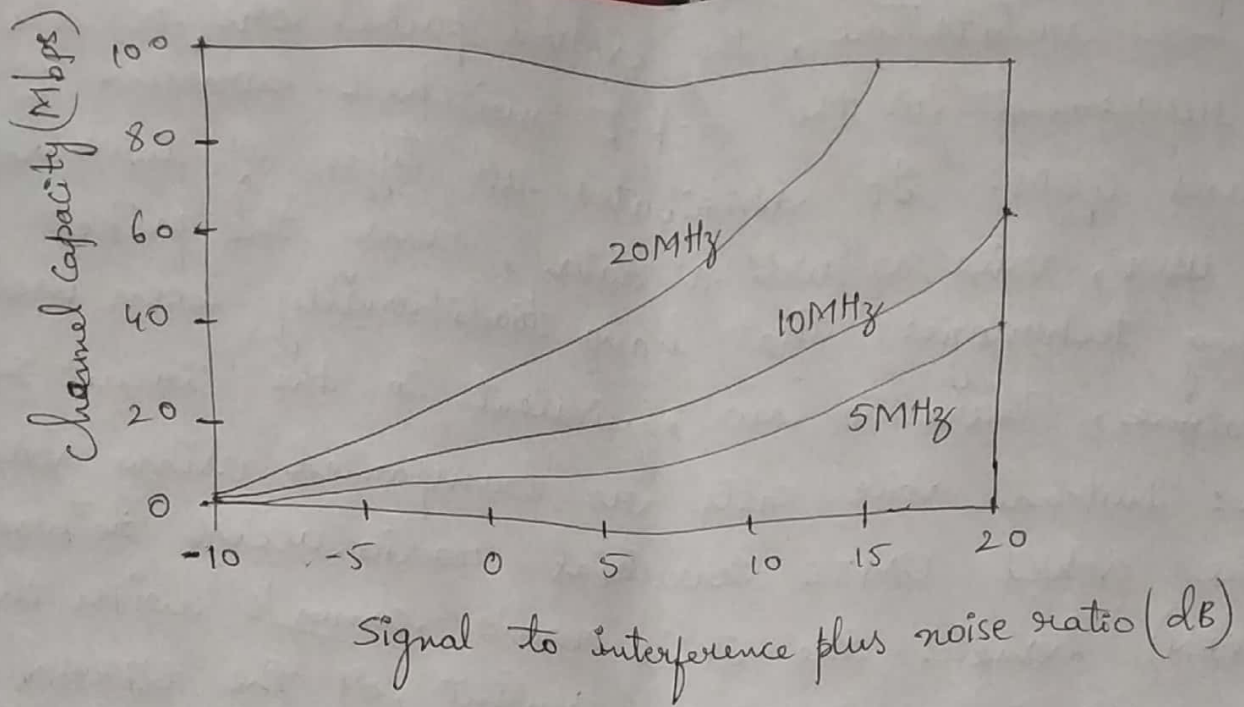 Channel Capacity (Mbps)
100
80
60
40
20
0
20MHz
10MHz
5MHz
-10 -5 0 5 10 15 20
Signal to interference plus noise ratio (dB)